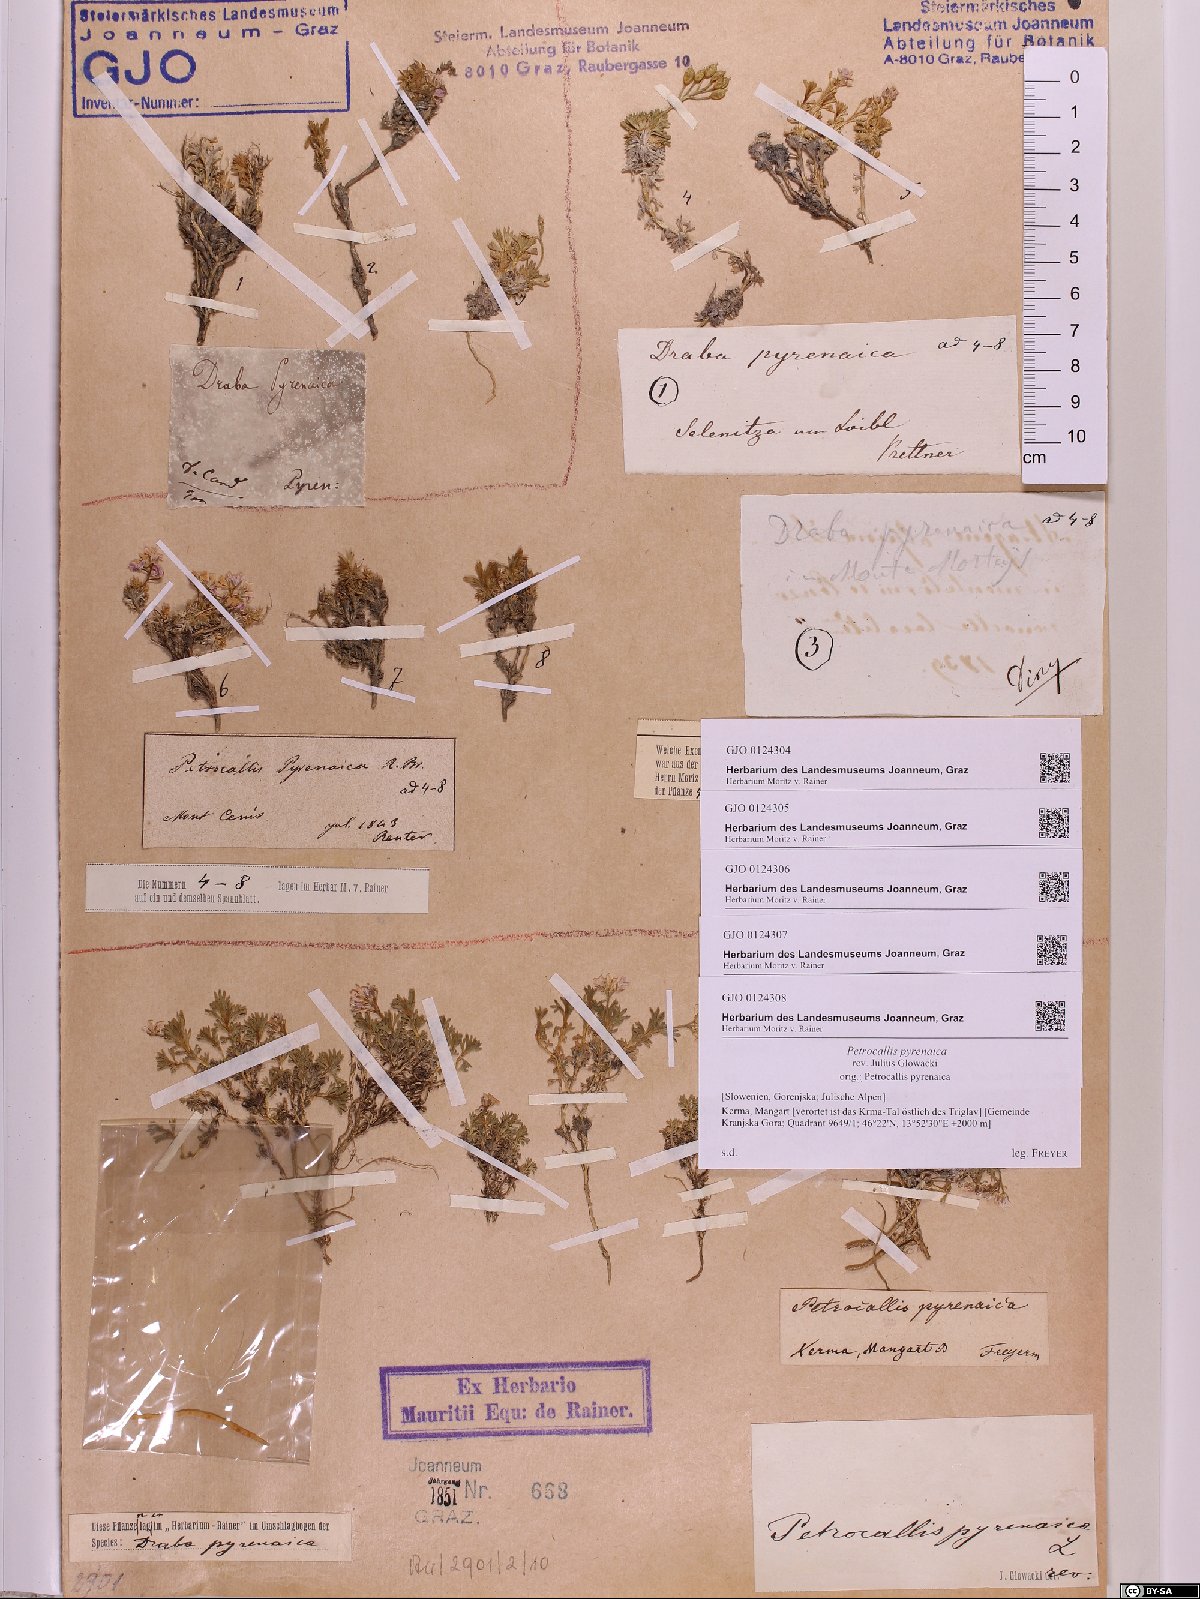 Steiermärkisches Landesmuseum
Joanneum - Graz
GJO
Inventar-Nummer:
Steierm. Landesmuseum Joanneum
Abteilung für Botanik
A-8010 Graz, Raubergasse 10
Steiermärkisches
Landesmuseum Joanneum
Abteilung für Botanik
A-8010 Graz, Raube
0
1
2
3
4
5
6
7
8
9
10
cm
1
2
4
5
Draba Pyrenaica
Pyren:
Draba pyrenaica ad 4-8
1
Selenitza am Loibl
Draba pyrenaica ad 4-8
in Monte
3
6
7
8
Petrocallis Pyrenaica R. Br.
ad 4-8
Mont Cenis
jul. 1843
Reuter.
Die Nummern 4-8 lagen im Herbar M. v. Rainer
auf ein und demselben Spannblatt.
Welche Exem
war aus der
Herrn Moriz
der Pflanze
GJO 0124304
Herbarium des Landesmuseums Joanneum, Graz
Herbarium Moritz v. Rainer
GJO 0124305
Herbarium des Landesmuseums Joanneum, Graz
Herbarium Moritz v. Rainer
GJO 0124306
Herbarium des Landesmuseums Joanneum, Graz
Herbarium Moritz v. Rainer
GJO 0124307
Herbarium des Landesmuseums Joanneum, Graz
Herbarium Moritz v. Rainer
GJO 0124308
Herbarium des Landesmuseums Joanneum, Graz
Herbarium Moritz v. Rainer
Petrocallis pyrenaica
rev. Julius Glowacki
orig.: Petrocallis pyrenaica
[Slowenien, Gorenjska; Julische Alpen]
Kerma, Mangart [verortet ist das Krma-Tal östlich des Triglav] [Gemeinde
Kranjska Gora; Quadrant 9649/1; 46°22'N, 13°52'30"E +2000 m]
s.d. leg. FREYER
Petrocallis pyrenaica
Kerma, Mangart
Ex Herbario
Mauritii Equ: de Rainer.
Joanneum
Jahrgang
1851 Nr. 668
GRAZ.
2901/2/10
Diese Pflanze lag im „Herbarium-Rainer" im Umschlagbogen der
Species: Draba pyrenaica
2901
Petrocallis pyrenaica
L
J. Glowacki rev:
BY-SA